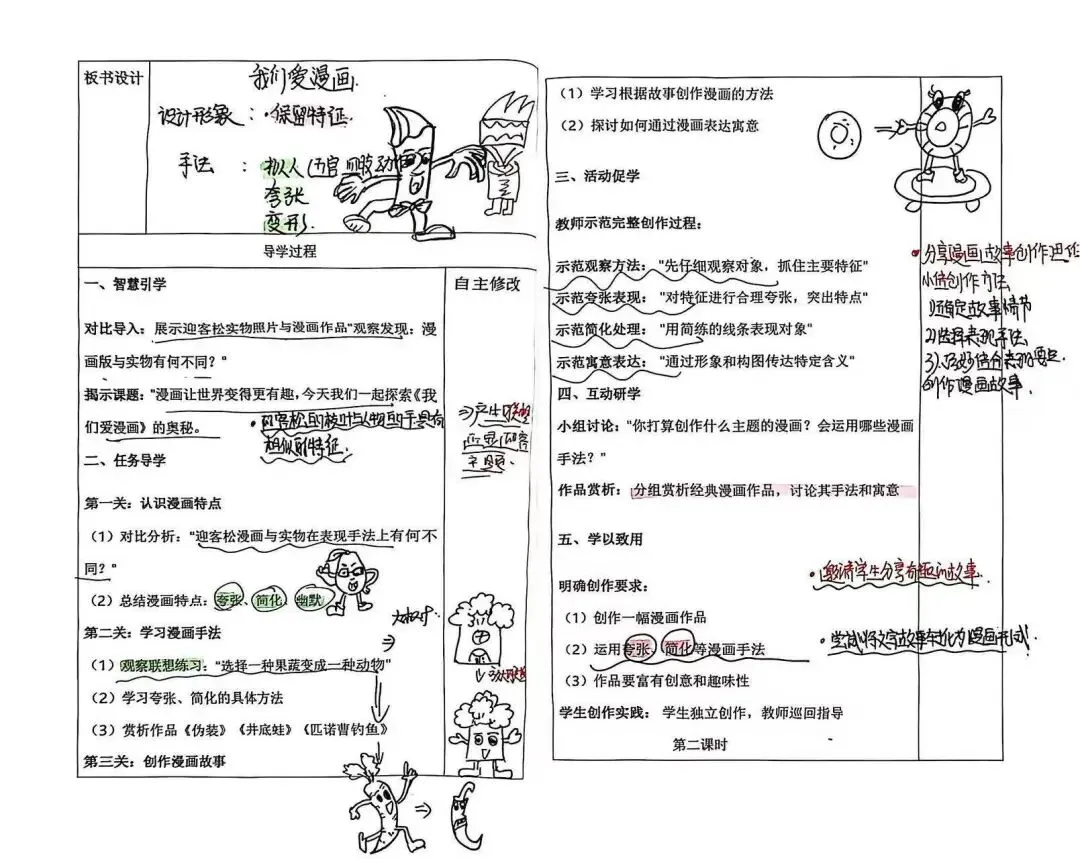 板书设计
我们爱漫画.
设计形象：·保留特征.
手法：拟人（五官 四肢 动作
夸张
变形.
导学过程
一、智慧引学
自主修改
对比导入：展示迎客松实物照片与漫画作品"观察发现：漫
画版与实物有何不同？"
揭示课题："漫画让世界变得更有趣，今天我们一起探索《我
们爱漫画》的奥秘。
·迎客松的枝叶与人物的手具有
相似的特征.
⇒产生联想
迎客
主题.
二、任务导学
第一关：认识漫画特点
（1）对比分析："迎客松漫画与实物在表现手法上有何不
同？"
（2）总结漫画特点：夸张、简化、幽默
第二关：学习漫画手法
（1）观察联想练习："选择一种果蔬变成一种动物"
（2）学习夸张、简化的具体方法
（3）赏析作品《伪装》《井底蛙》《匹诺曹钓鱼》
第三关：创作漫画故事
（1）学习根据故事创作漫画的方法
（2）探讨如何通过漫画表达寓意
三、活动促学
教师示范完整创作过程：
示范观察方法："先仔细观察对象，抓住主要特征"
示范夸张表现："对特征进行合理夸张，突出特点"
示范简化处理："用简练的线条表现对象"
示范寓意表达："通过形象和构图传达特定含义"
·分享漫画故事创作过程
小结创作方法
1)确定故事情节
2)选择表现手法
3)巧妙结合表现要点
创作漫画故事.
四、互动研学
小组讨论："你打算创作什么主题的漫画？会运用哪些漫画
手法？"
作品赏析：分组赏析经典漫画作品，讨论其手法和寓意
五、学以致用
·邀请学生分享有趣的故事.
明确创作要求：
（1）创作一幅漫画作品
（2）运用夸张、简化等漫画手法
·尝试将文字故事转化为漫画形式!
（3）作品要富有创意和趣味性
学生创作实践： 学生独立创作，教师巡回指导
第二课时